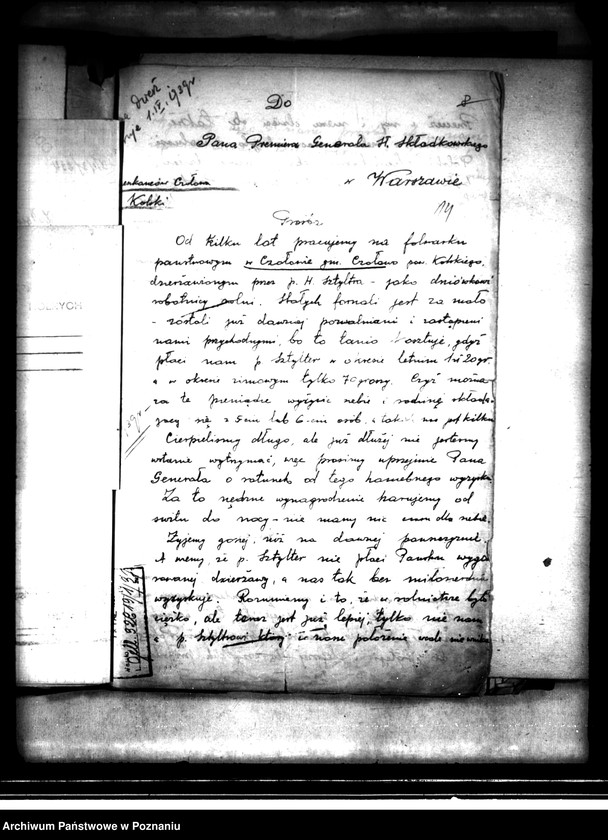 dnia
1.IV.1939r
Do
8
Pana Premiera Generała Sł. Składkowskiego
w Warszawie
Czołowa
Kolski
14
Od kilku lat pracujemy na folwarku
państwowym w Czołowie gm. Czołowo pow. Kolskiego,
dzierżawionym przez p. H. Sztyltra - jako dniówkowi
robotnicy rolni. Stałych fornali jest za mało
- zostali już dawniej pozwalniani i zastąpieni
nami przychodnymi, bo to tanio kosztuje, gdyż
płaci nam p. Sztylter w okresie letnim 1 zł 20 gr
a w okresie zimowym tylko 70 groszy. Czyż można
za te pieniądze wyżywić siebie i rodzinę składa-
jącą się z 5-ciu lub 6-ciu osób, a takich nas jest kilku
Cierpieliśmy długo, ale już dłużej nie jesteśmy
wstanie wytrzymać, więc prosimy uprzejmie Pana
Generała o ratunek od tego haniebnego wyzysku
Za to nędzne wynagrodzenie harujemy od
świtu do nocy - nie mamy nic dla siebie.
Żyjemy gorzej, niż za dawnej pańszczyzny.
A wiemy, że p. Sztylter nie płaci Państwu
dzierżawy, a nas tak bez miłosierdzia
wyzyskuje. Rozumiemy i to, że w rolnictwie było
ciężko, ale teraz jest już lepiej, tylko nie nam
a p. Sztyltrowi który
położenie wcale nie
Archiwum Państwowe w Poznaniu